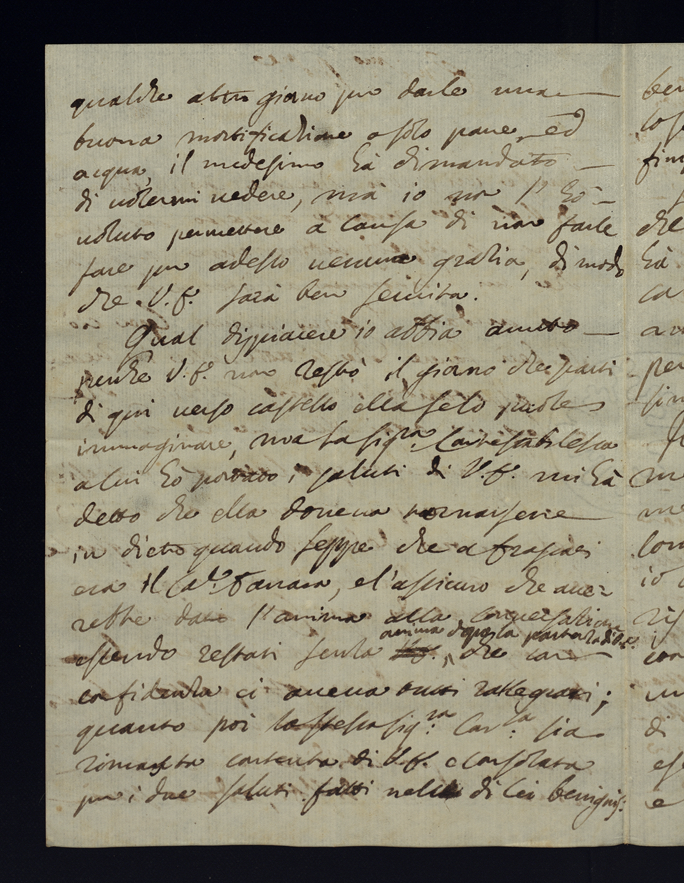 qualche altro giorno per darle una
buona mortificazione a solo pane, ed
acqua, il medesimo hà dimandato
di volermi vedere, mà io non l'hò
voluto permettere a causa di non farle
fare per adesso nessuna grazia, di modo
che V.E. sarà ben servita.
Qual dispiacere io abbia avuto
perche V.E. non restò il giorno che partì
di qui verso castello ella selo puole
immaginare, ma la Sig.ra Contestabilessa
a cui hò portato i saluti di V.E. mi hà
detto che ella doveva tornarsene
in dietro quando seppe che a Frascati
era il Ca.l Fanara, e l'assicuro che aue-
rebbe dato l'anima alla conversazione
anima d'questa partenza di V.E.
essendo restati senza che con
confidenza ci aveva tutti rallegrati;
quanto poi la stessa Sig.ra Con.sa sia
rimasta contenta di V.E. e consolata
per i due saluti fatti nella di lei benignis:
ben
cos
fin
che
hà
ca
av
per
sin
me
me
lon
io
ris
con
un
di
es
e